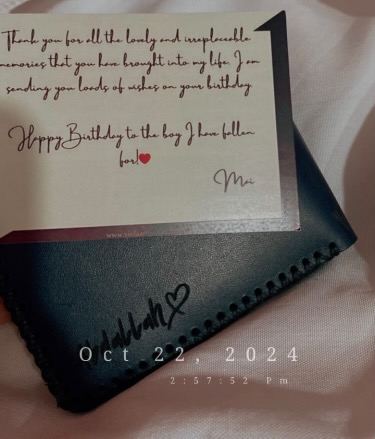 Thank you for all the lovely and irreplaceable
memories that you have brought into my life. I am
sending you loads of wishes on your birthday
Happy Birthday to the boy I have fallen
for!❤
Mai
Oct 22, 2024
2:57:52 Pm